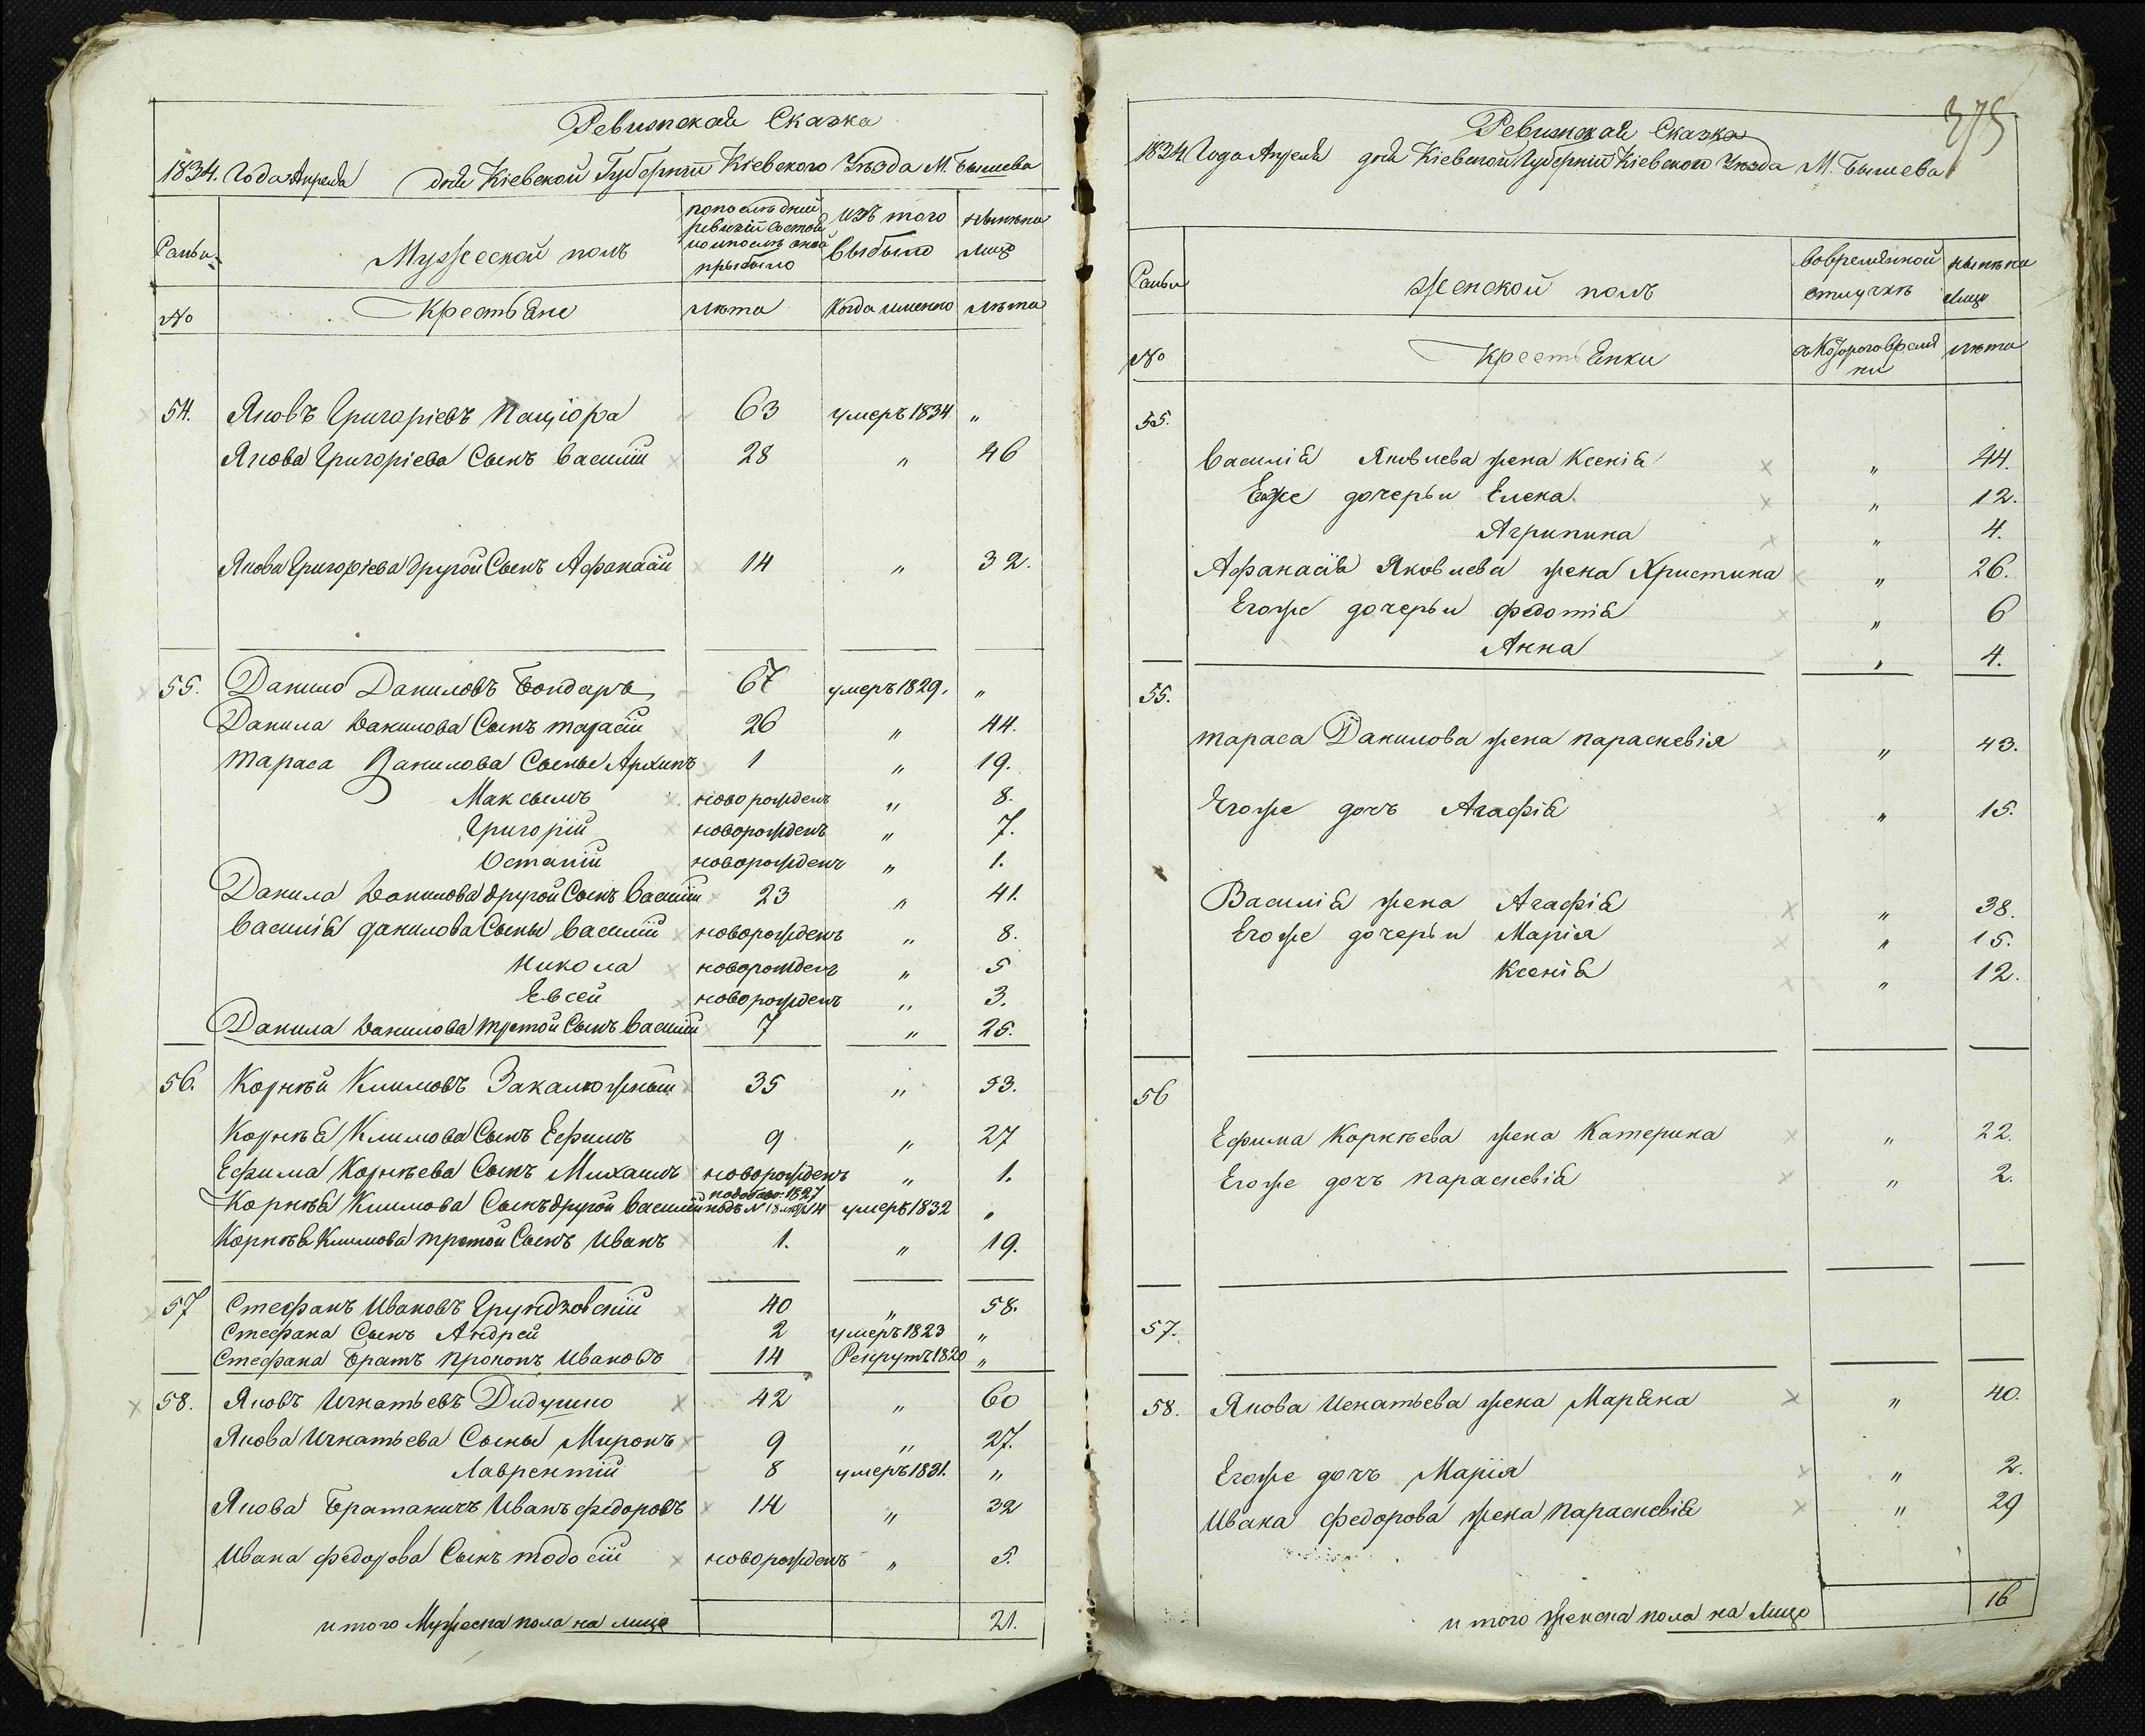 Ревижская Сказка
1834. Года Апреля дня Кіевской Губерніи Кіевского Уѣзда М. Бышева
Мужеской полъ
попослѣдней ревизіи состояло ипослѣ оной прыбыло
Изъ того выбыло
нынѣ на лицо
№ Крестьяне лѣта Когда именно лѣта
54. Яковъ Григоріевъ Пацюра 63 умеръ 1834 „
Якова Григоріева Сынъ Василій 28 „ 46
Якова Григоріева другой Сынъ Афанасій 14 „ 32.
55. Данило Даниловъ Бондаръ 67 умеръ 1829. „
Данила Данилова Сынъ тарасій 26 „ 44.
тараса Данилова Сыны Архипъ 1 „ 19.
Максымъ новорожденъ „ 8.
Григорій новорожденъ „ 7.
Остапій новорожденъ „ 1.
Данила Данилова другой Сынъ Василій 23 „ 41.
Василія данилова Сыны Василій новорожденъ „ 8.
Никола новорожденъ „ 5
Евсей новорожденъ „ 3.
Данила Данилова третой Сынъ Василій 7 „ 25.
56. Корнѣй Климовъ Закалюжный 35 „ 53.
Корнѣя Климова Сынъ Ефимъ 9 „ 27
Ефима Корнѣева Сынъ Михаилъ новорожденъ „ 1.
Корнѣя Климова Сынъ другой Василий 1827 подъ № 18 14 умеръ 1832 „
Корнѣя Климова третой Сынъ Иванъ 1. „ 19.
57 Стефанъ Ивановъ Грундзовскій 40 „ 58.
Стефана Сынъ Андрей 2 умеръ 1823 „
Стефана Братъ Прокопъ Ивановъ 14 Рекрутъ 1820 „
58. Яковъ Игнатьевъ Дидушко 42 „ 60
Якова Игнатьева Сыны Миронъ 9 „ 27.
Лаврентій 8 умеръ 1831. „
Якова Братаничъ Иванъ федоровъ 14 „ 32
Ивана федорова Сынъ тодосій новорожденъ „ 5.
итого Мужеска пола на лицо 21.
375
Ревижская Сказка
1834 Года Апреля дня Кіевской Губерніи Кіевского Уѣзда М. Бышева
Женской полъ
вовременной отлучкѣ
нынѣ на лицо
№ Крестьянки съ Которого времени лѣта
55.
Василія Яковлева жена Ксенія „ 44.
Егоже дочерьи Елена „ 12.
Агрипина „ 4.
Афанасія Яковлева жена Христина „ 26.
Егоже дочерьи федотія „ 6
Анна „ 4.
55.
тараса Данилова жена параскевія „ 43.
Егоже дочъ Агафія „ 15.
Василія жена Агафія „ 38.
Егоже дочерьи Марія „ 15.
Ксенія „ 12.
56
Ефима Корнѣева жена Катерина „ 22.
Егоже дочъ параскевія „ 2.
57.
58. Якова Игнатьева жена Маряна „ 40.
Егоже дочъ Марія „ 2.
Ивана федорова жена параскевія „ 29
итого женска пола на лицо 16